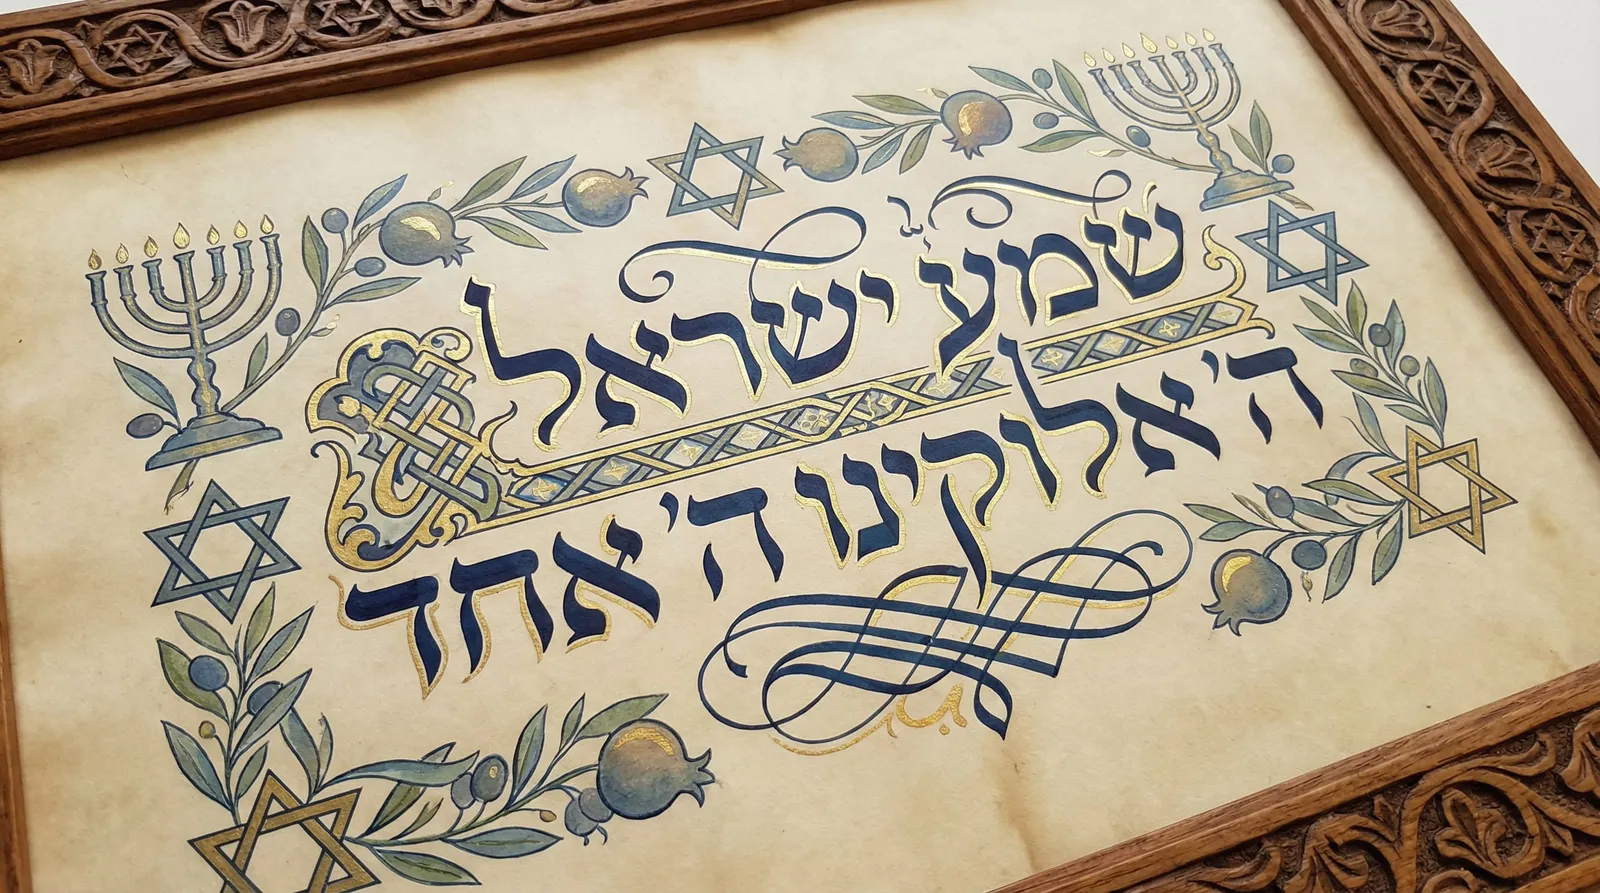 שמע ישראל
ה' אלוקינו ה' אחד